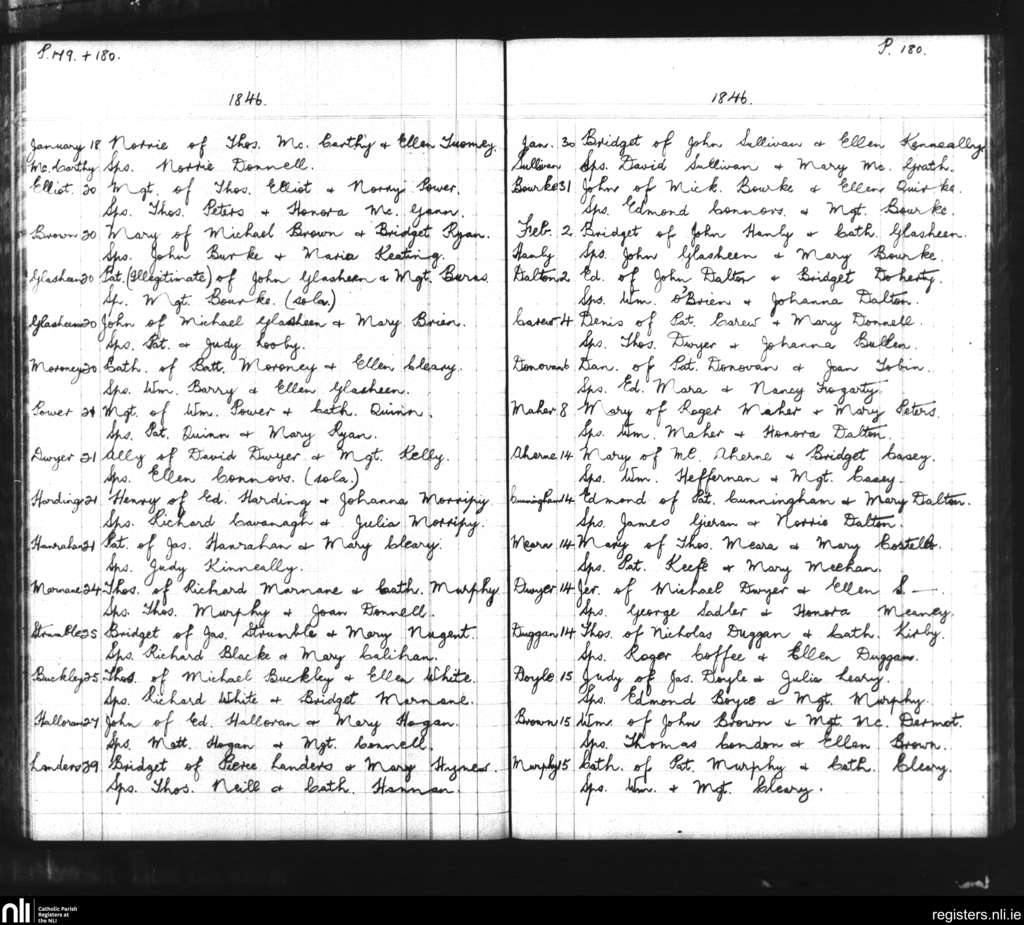 P. 179. + 180.
1846.
January 18 Norrie of Thos. Mc. Carthy + Ellen Tuomey.
Mc. Carthy Sps. Norrie Donnell.
Elliot. 20 Mgt. of Thos. Elliot + Norry Power.
Sps. Thos. Peters + Honora Mc. Gann.
Brown 20 Mary of Michael Brown + Bridget Ryan.
Sps. John Burke + Maria Keating.
Glasheen 20 Pat. (Illegitimate) of John Glasheen + Mgt.
Sp. Mgt. Bourke. (sola.)
Glasheen 20 John of Michael Glasheen + Mary Brien.
Sps. Pat. + Judy Looby.
Moroney 20 Cath. of Batt. Moroney + Ellen Cleary.
Sps. Wm. Barry + Ellen Glasheen.
Power 21 Mgt. of Wm. Power + Cath. Quinn.
Sps. Pat. Quinn + Mary Ryan.
Dwyer 21 Ally of David Dwyer + Mgt. Kelly.
Sps. Ellen Connors. (sola.)
Harding 21 Henry of Ed. Harding + Johanna Morripy.
Sps. Richard Cavanagh + Julia Morripy.
Hanrahan 21 Pat. of Jas. Hanrahan + Mary Cleary.
Sps. Judy Kinneally.
Marnane 24 Thos. of Richard Marnane + Cath. Murphy.
Sps. Thos. Murphy + Joan Donnell.
Strumble 25 Bridget of Jas. Strumble + Mary Nugent.
Sps. Richard Blacke + Mary Calihan.
Buckley 25 Thos. of Michael Buckley + Ellen White.
Sps. Richard White + Bridget Marnane.
Halloran 27 John of Ed. Halloran + Mary Hogan.
Sps. Matt. Hogan + Mgt. Connell.
Landers 29 Bridget of Pierce Landers + Mary Hynes.
Sps. Thos. Neill + Cath. Hannan.
P. 180.
1846.
Jan. 30 Bridget of John Sullivan + Ellen Kenneally.
Sullivan Sps. David Sullivan + Mary Mc. Grath.
Bourke 31 John of Mick. Bourke + Ellen Quirke.
Sps. Edmond Connors. + Mgt. Bourke.
Feb. 2 Bridget of John Hanly + Cath. Glasheen.
Hanly Sps. John Glasheen + Mary Bourke.
Dalton 2 Ed. of John Dalton + Bridget Doherty.
Sps. Wm. O'Brien + Johanna Dalton.
Carew 4 Denis of Pat. Carew + Mary Donnell.
Sps. Thos. Dwyer + Johanna Bullen.
Donovan 6 Dan. of Pat. Donovan + Joan Tobin.
Sps. Ed. Mara + Nancy Fogarty.
Maher 8 Mary of Roger Maher + Mary Peters.
Sps. Wm. Maher + Honora Dalton.
Aherne 14 Mary of Ml. Aherne + Bridget Casey.
Sps. Wm. Heffernan + Mgt. Casey.
Cunningham 14 Edmond of Pat. Cunningham + Mary Dalton.
Sps. James Gieran + Norrie Dalton.
Meara 14 Mary of Thos. Meara + Mary Costello.
Sps. Pat. Keefe + Mary Meehan.
Dwyer 14 Jer. of Michael Dwyer + Ellen S—.
Sps. George Sadler + Honora Meaney.
Duggan 14 Thos. of Nicholas Duggan + Cath. Kirby.
Sps. Roger Coffee + Ellen Duggan.
Doyle 15 Judy of Jas. Doyle + Julia Leary.
Sps. Edmond Boyce + Mgt. Murphy.
Brown 15 Wm. of John Brown + Mgt. Mc. Dermot.
Sps. Thomas Condon + Ellen Brown.
Murphy 15 Cath. of Pat. Murphy + Cath. Cleary.
Sps. Wm. + Mgt. Cleary.
nli
Catholic Parish
Registers at
the NLI
registers.nli.ie